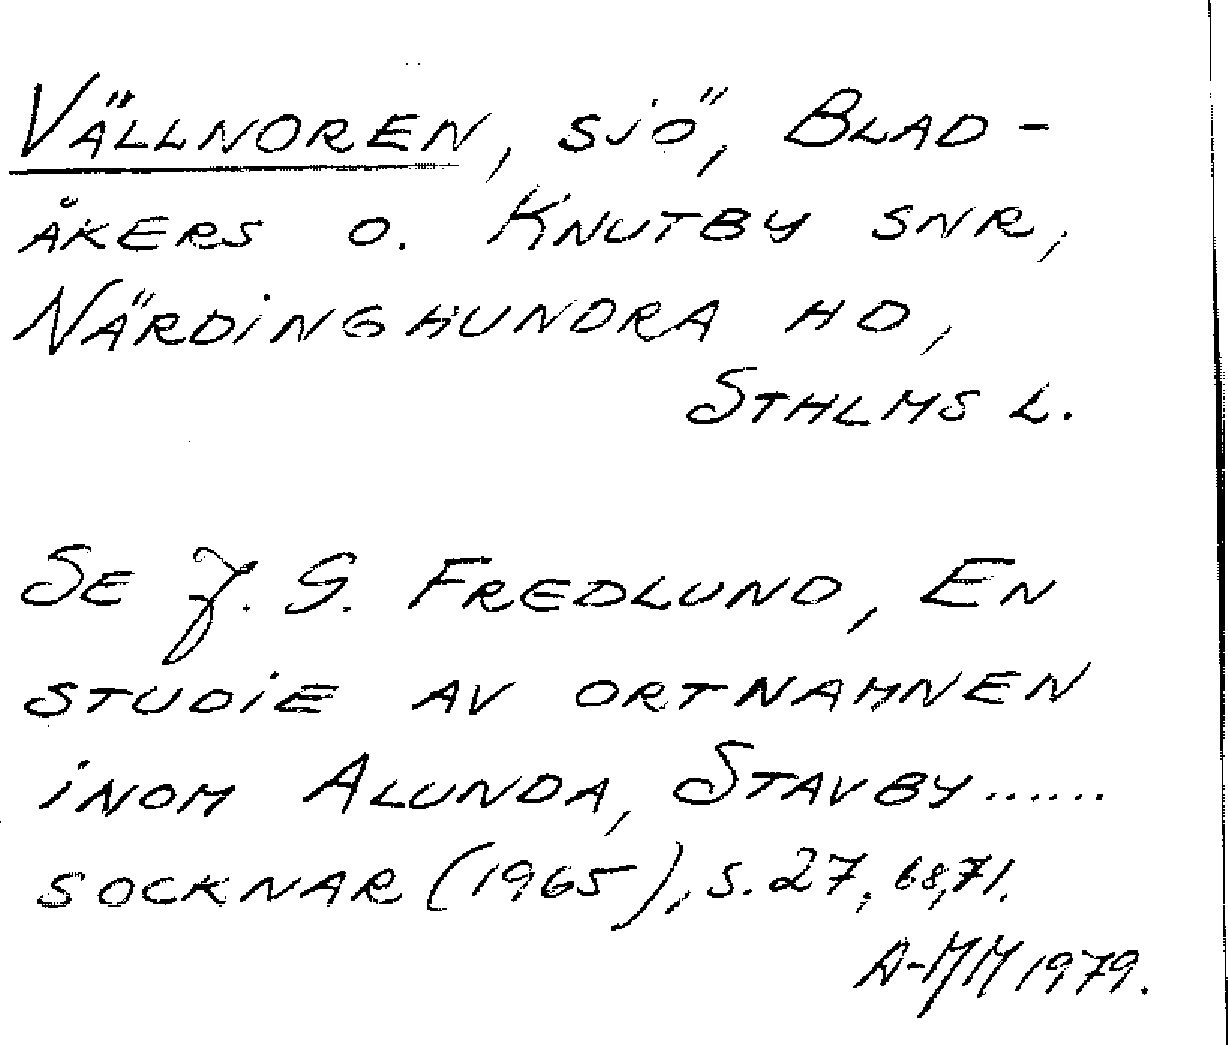 VÄLLNOREN, SJÖ, BLAD-
ÅKERS O. KNUTBY SNR,
NÄRDINGHUNDRA HD,
STHLMS L.
SE J. G. FREDLUND, EN
STUDIE AV ORTNAMNEN
INOM ALUNDA, STAVBY......
SOCKNAR (1965), S. 27, 68, 71.
A-MM 1979.